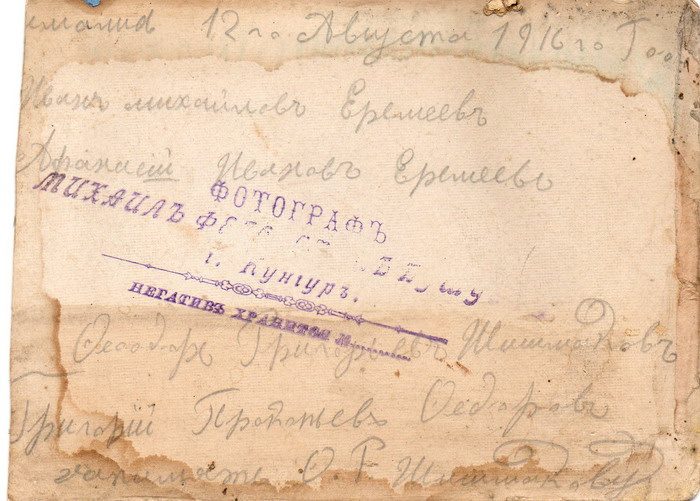 12 го Августа 1916 го Го
Иванъ михайловъ Еремеевъ
Афанасій Ивановъ Еремеевъ
ФОТОГРАФЪ
МИХАИЛЪ
г. Кунгуръ.
НЕГАТИВЪ ХРАНИТСЯ №
Феодоръ Григорьевъ Шишмаковъ
Григорій Прокопьевъ Федоровъ
Ф. Г. Шишмаковъ